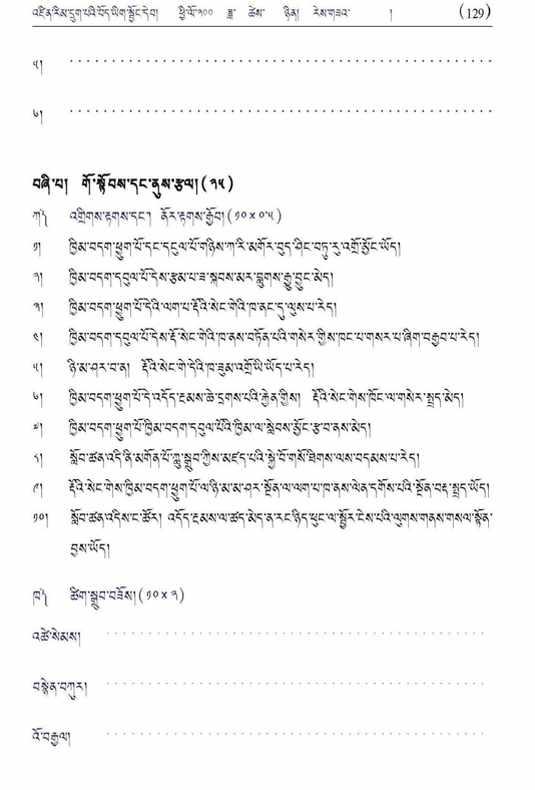 འཛིན་རིམ་དྲུག་པའི་བོད་ཡིག་སྦྱོང་དེབ། ཕྱི་ལོ་༢༠༠ ཟླ་ ཚེས་ ཉིན། རེས་གཟའ་ ། (129)
༥།
༦།
བཞི་པ། གོ་སྟོབས་དང་ནུས་རྩལ། (༢༥)
ཀ༽ འགྲིགས་རྟགས་དང་། ནོར་རྟགས་རྒྱོབ། (༡༠ x ༠.༥)
༡། ཁྱིམ་བདག་ཕྱུག་པོ་དང་དབུལ་པོ་གཉིས་ཀ་རི་མགོར་བུད་ཤིང་བཏུ་རུ་འགྲོ་མྱོང་ཡོད།
༢། ཁྱིམ་བདག་དབུལ་པོ་དེས་རྩམ་པ་ཟ་སྐབས་མར་བླུགས་རྒྱུ་བྱུང་མེད།
༣། ཁྱིམ་བདག་ཕྱུག་པོ་དེའི་ལག་པ་རྡོའི་སེང་གེའི་ཁ་ནང་དུ་ལུས་པ་རེད།
༤། ཁྱིམ་བདག་དབུལ་པོ་དེས་རྡོ་སེང་གེའི་ཁ་ནས་བཏོན་པའི་གསེར་གྱིས་ཁང་པ་གསར་པ་ཞིག་བརྒྱབ་པ་རེད།
༥། ཉི་མ་ཤར་བ་ན། རྡོའི་སེང་གེ་དེའི་ཁ་ཟུམ་འགྲོ་ཡི་ཡོད་པ་རེད།
༦། ཁྱིམ་བདག་ཕྱུག་པོ་དེ་འདོད་རྔམས་ཆེ་དྲགས་པའི་རྐྱེན་གྱིས། རྡོའི་སེང་གེས་ཁོང་ལ་གསེར་སྤྲད་མེད།
༧། ཁྱིམ་བདག་ཕྱུག་པོ་ཁྱིམ་བདག་དབུལ་པོའི་ཁྱིམ་ལ་སླེབས་མྱོང་རྩ་བ་ནས་མེད།
༨། སློབ་ཚན་འདི་ནི་མགོན་པོ་ཀླུ་སྒྲུབ་ཀྱིས་མཛད་པའི་སྐྱེ་བོ་གསོ་ཐིགས་ལས་བདམས་པ་རེད།
༩། རྡོའི་སེང་གེས་ཁྱིམ་བདག་ཕྱུག་པོ་ལ་ཉི་མ་མ་ཤར་སྔོན་ལ་ལག་པ་ཁ་ནས་ལེན་དགོས་པའི་སྔོན་བརྡ་སྤྲད་ཡོད།
༡༠། སློབ་ཚན་འདིས་ང་ཚོར། འདོད་རྔམས་ལ་ཚད་མེད་ན་རང་ཉིད་ཕུང་ལ་སྦྱོར་ངེས་པའི་ལུགས་གནས་གསལ་སྟོན་
བྱས་ཡོད།
ཁ༽ ཚིག་སྒྲུབ་བཟོས། (༡༠ x ༢)
འཚེ་སེམས།
བསྙེན་བཀུར།
འོ་བརྒྱལ།